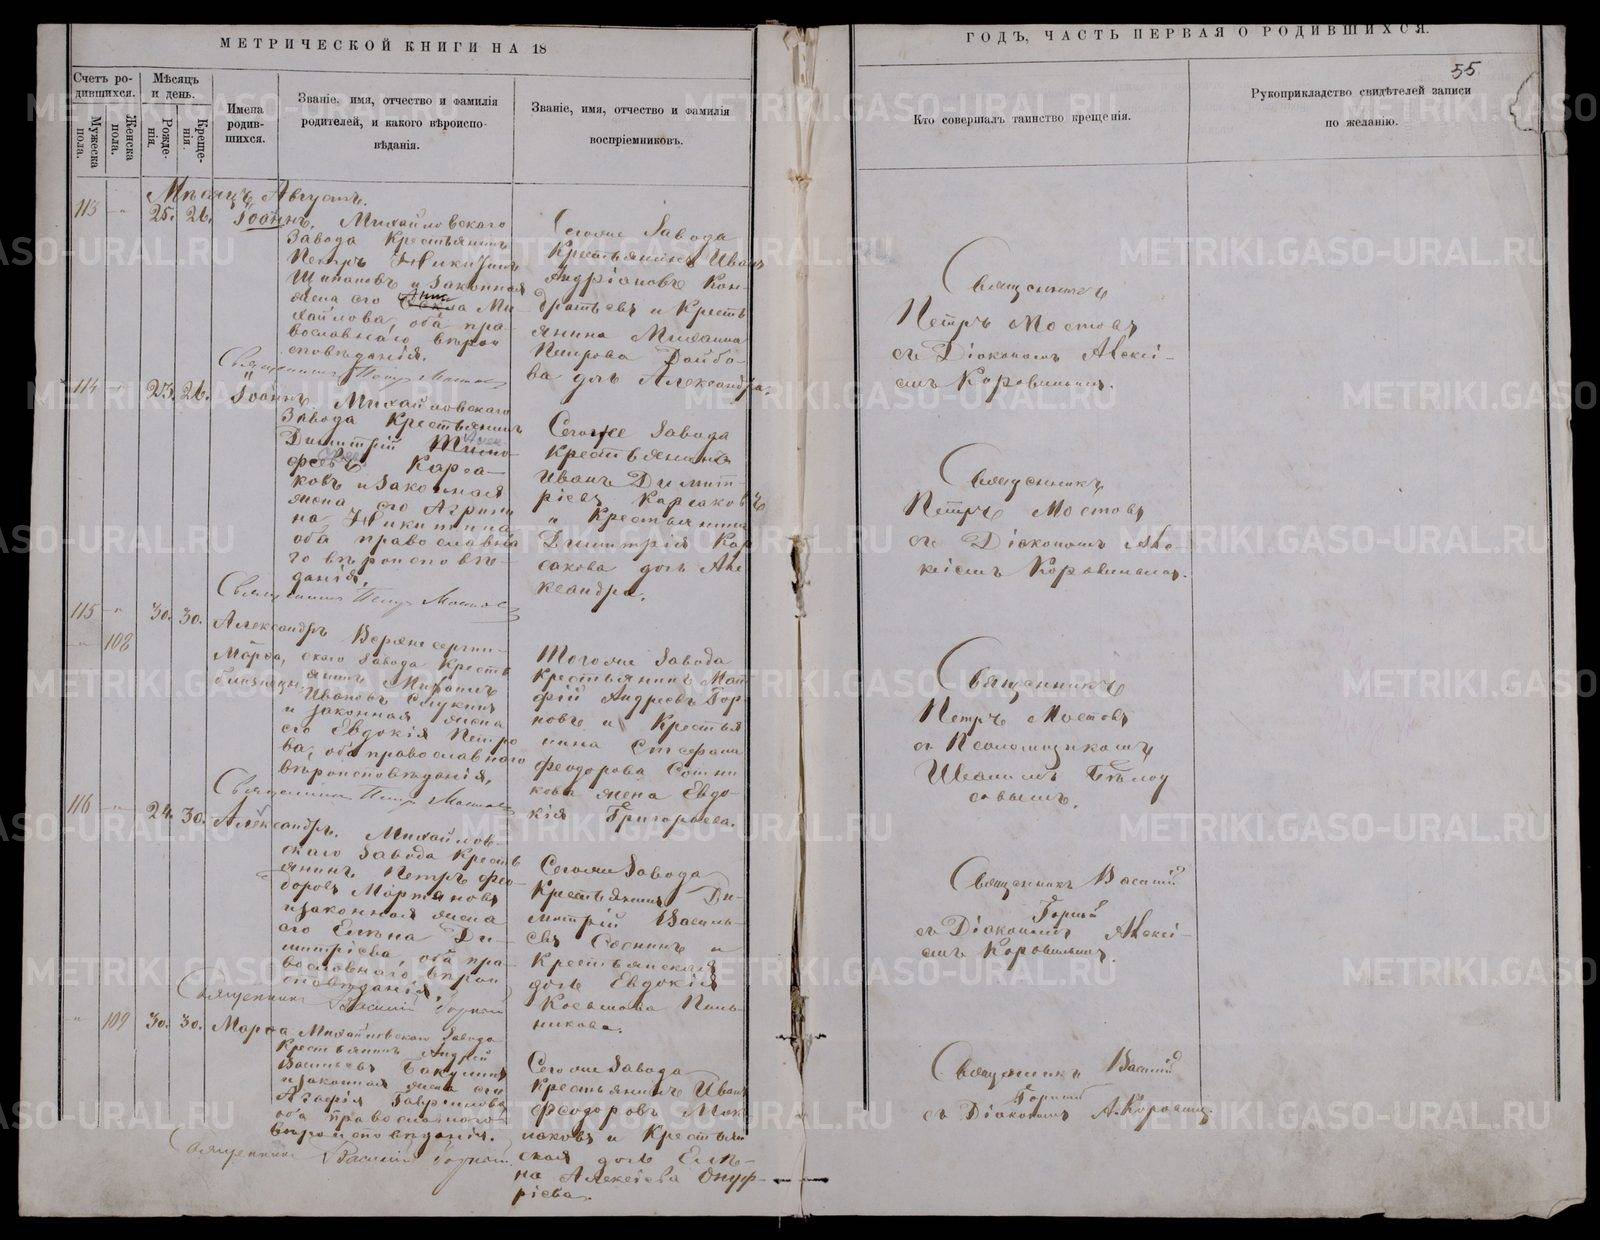 МЕТРИЧЕСКОЙ КНИГИ НА 18
ГОДЪ, ЧАСТЬ ПЕРВАЯ О РОДИВШИХСЯ.
55
Счетъ ро-
дившихся.
Мужеска
пола.
Женска
пола.
Мѣсяцъ
и день.
Рожде-
нія.
Креще-
нія.
Имена
родив-
шихся.
Званіе, имя, отчество и фамилія
родителей, и какого вѣроиспо-
вѣданія.
Званіе, имя, отчество и фамилія
воспріемниковъ.
Кто совершалъ таинство крещенія.
Рукоприкладство свидѣтелей записи
по желанію.
Августъ.
113 25. 26. Іоаннъ.
Михайловскаго
Завода Крестьянинъ
Петръ Никитинъ
и Законная
жена его Анна Ми-
хайлова, оба пра-
вославнаго вѣрои
сповѣданія.
Священникъ Петръ Мостовъ
Сегоже Завода
Крестьянинъ Иванъ
Андріановъ Кон-
дратьевъ и Кресть
янина Михаила
Петрова
ва дочь Александра.
Священникъ
Петръ Мостовъ
съ Діакономъ Алексі-
емъ Коровинымъ.
114 23. 26. Іоаннъ.
Михайловскаго
Завода Крестьянинъ
Димитрій
Карса-
ковъ и Законная
жена его Агрипи
на Никитина
оба православна
го вѣроисповѣ-
данія.
Священникъ Петръ Мостовъ
Сегоже Завода
Крестьянинъ
Иванъ Димит-
ріевъ Карсаковъ
и Крестьянина
Димитрія Кар
сакова дочь Але
ксандра.
Священникъ
Петръ Мостовъ
съ Діакономъ Але-
ксіемъ Коровинымъ.
115 30. 30. Александръ
108 Марѳа,
близнецы
Верхнесергин-
скаго Завода Кресть
янинъ
Ивановъ
и законная жена
его Евдокія Петро
ва, оба православнаго
вѣроисповѣданія.
Священникъ Петръ Мостовъ
Тогоже Завода
Крестьянинъ Мат
ѳій Андреевъ Гор-
новъ и Крестья
нина Стефана
Ѳеодорова Сотни
кова жена Евдо-
кія Григорьева.
Священникъ
Петръ Мостовъ
съ Псаломщикомъ
116 24. 30. Александръ.
Михайлов-
скаго Завода Кресть
янинъ Петръ Ѳео-
доровъ Мартьяновъ
и законная жена
его Елена Ди-
митріева, оба пра-
вославнаго вѣрои
сповѣданія.
Священникъ Василій Горный
Сегоже Завода
Крестьянинъ Ди-
митрій Василь-
евъ Соснинъ и
Крестьянская
дочь Евдокія
Космова
никова.
Священникъ Василій
Горный
съ Діакономъ Алексі-
емъ Коровинымъ.
109 30. 30. Марѳа
Михайловскаго Завода
Крестьянинъ Андрей
Васильевъ Бакунинъ
и законная жена его
Агафія Гаврилова
оба православнаго
вѣроисповѣданія.
Священникъ Василій Горный
Сегоже Завода
Крестьянинъ Иванъ
Ѳеодоровъ
и Крестьян
ская дочь Еле-
на Алексіева Онуф-
ріева.
Священникъ Василій
Горный
съ Діакономъ А. Коровинъ.
METRIKI.GASO-URAL.RU